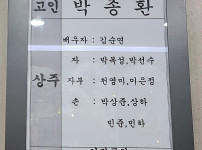 고인 박종환
배우자 : 김순연
자 : 박목성,박선수
상주 자부 : 천영미,이은정
손 : 박상준,상하
민준,민하